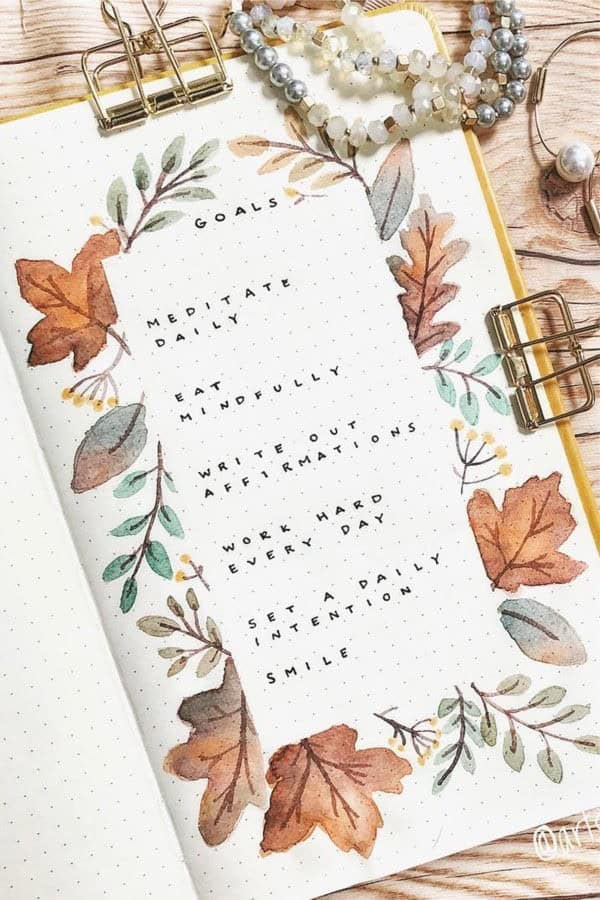 GOALS
MEDITATE
DAILY
EAT
MINDFULLY
WRITE OUT
AFFIRMATIONS
WORK HARD
EVERY DAY
SET A DAILY
INTENTION
SMILE